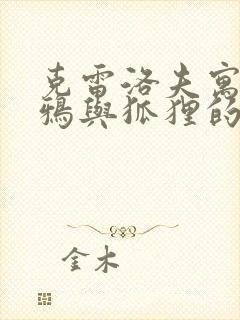 克雷洛夫寓
鴉與狐狸的
金木